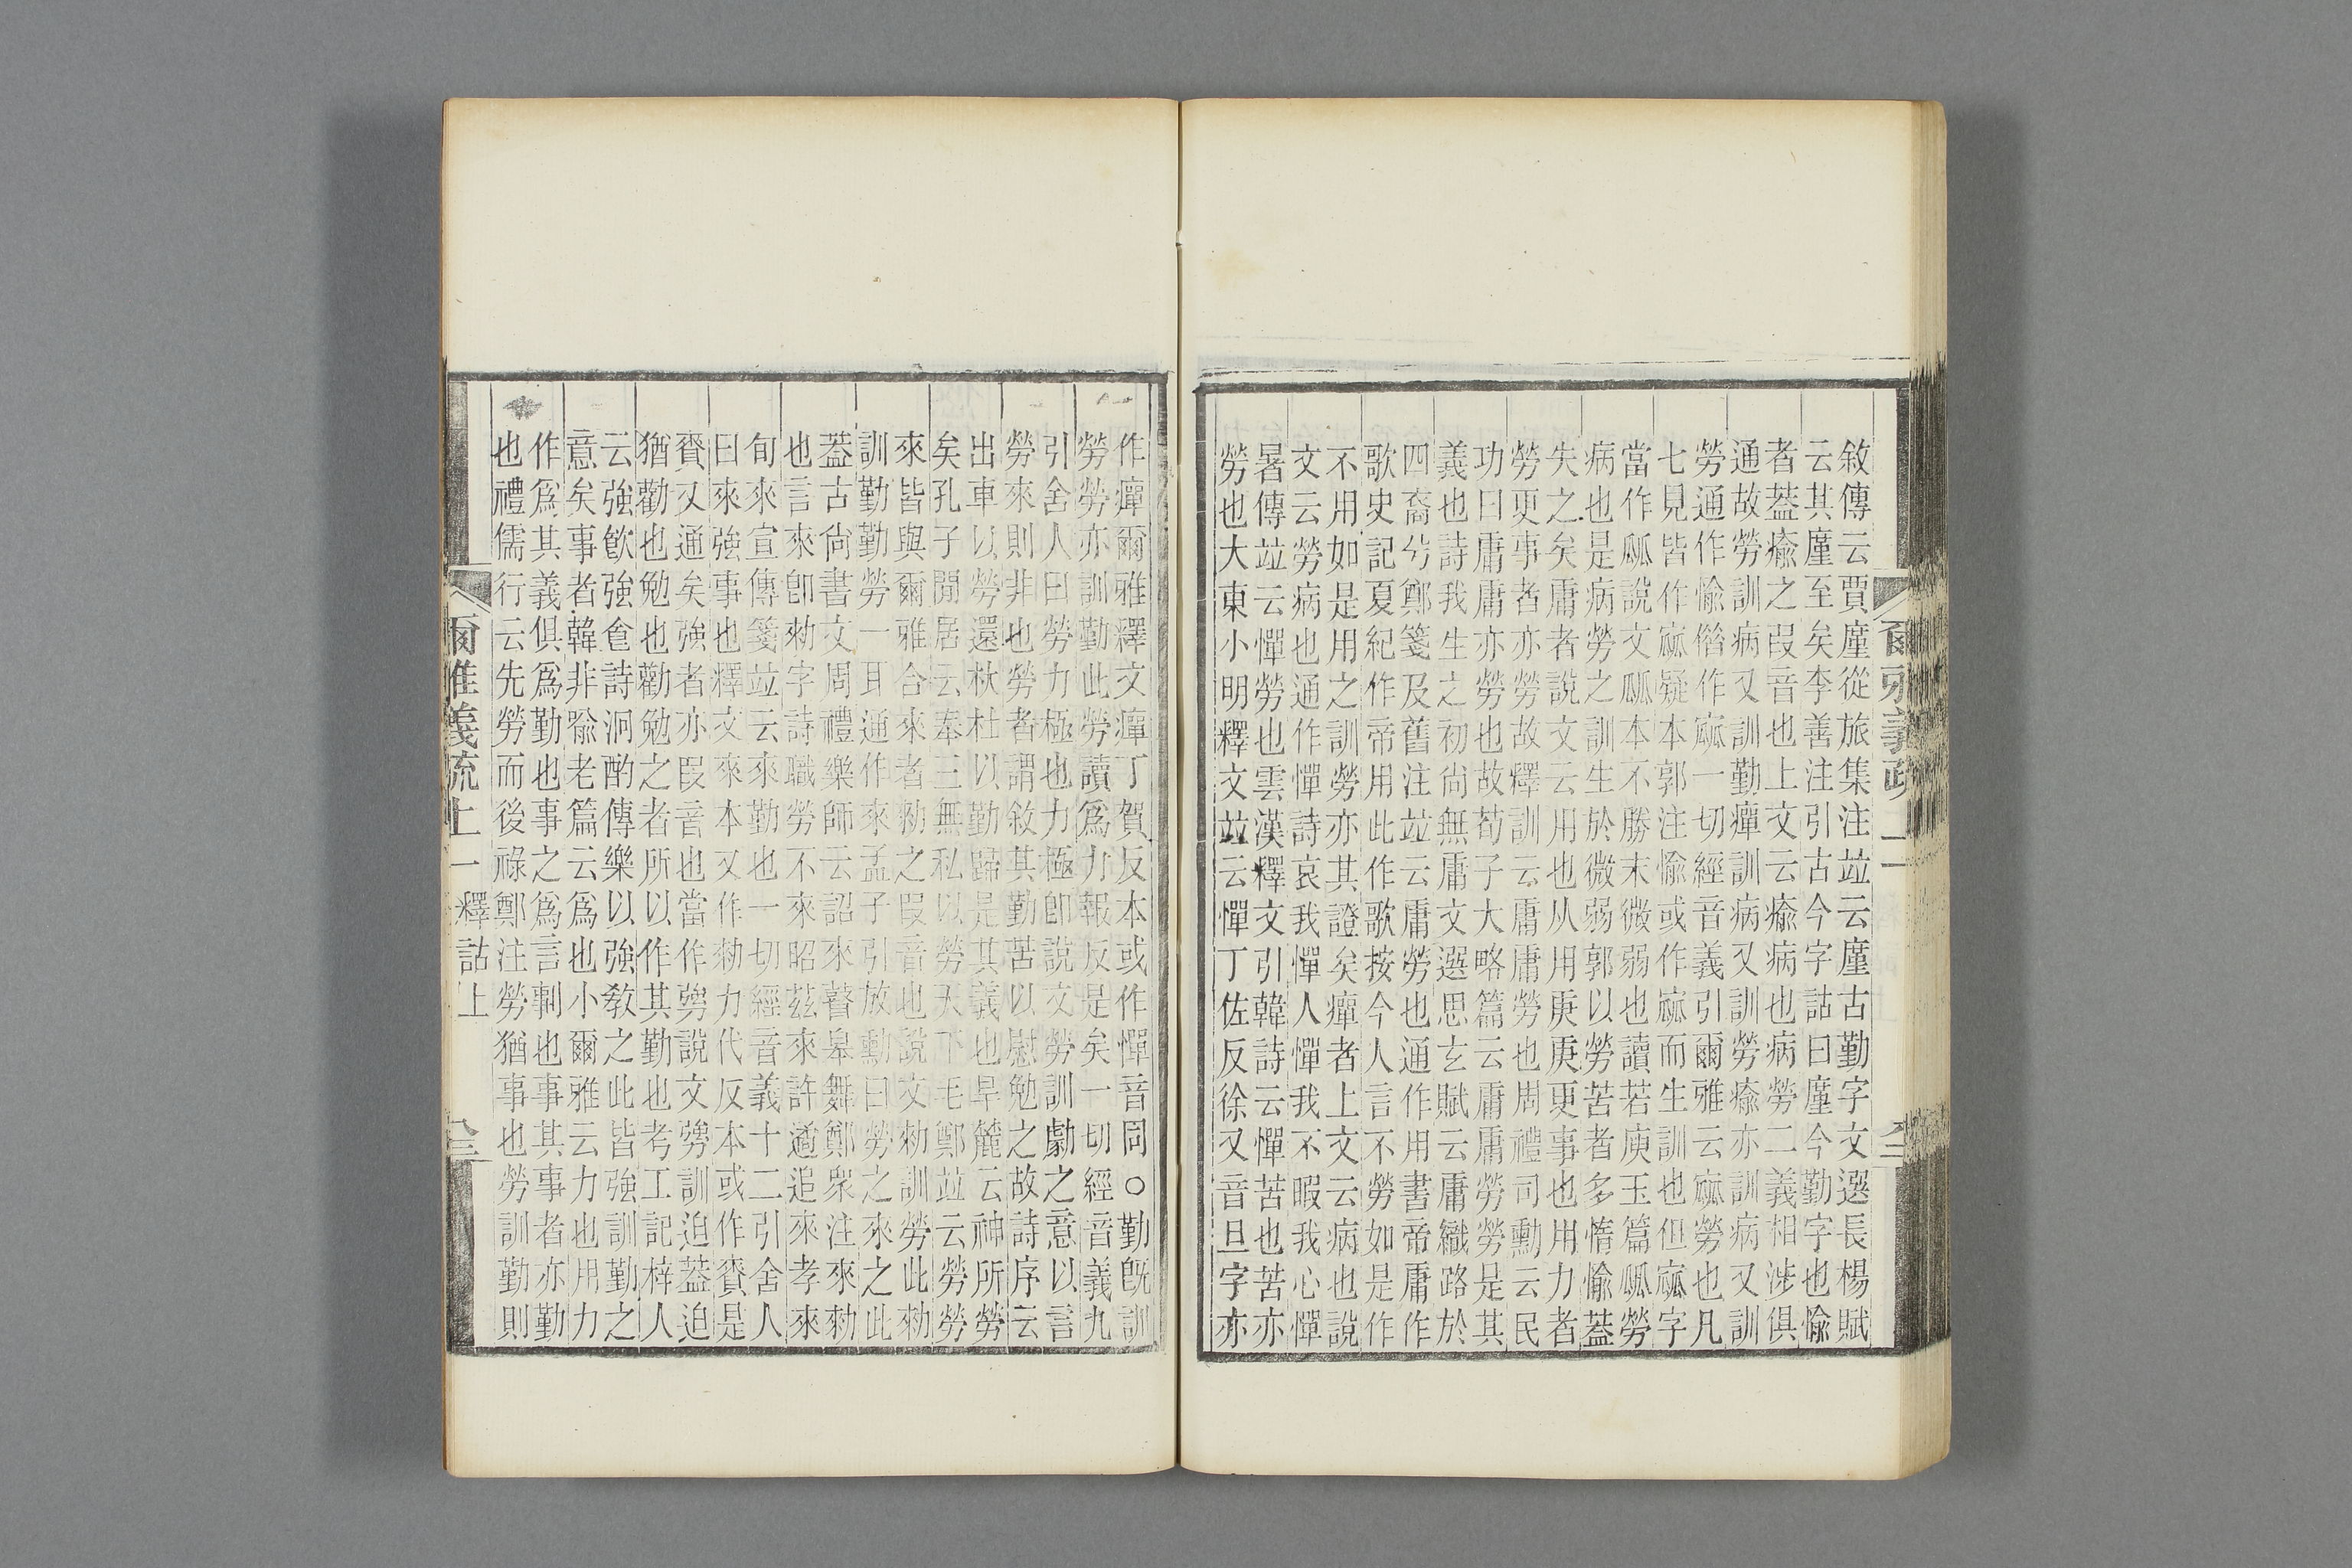 敘傳云賈廑從旅集注竝云廑古勤字文選長楊賦
云其廑至矣李善注引古今字詁曰廑今勤字也愉
者葢瘉之叚音也上文云瘉病也病勞二義相涉俱
通故勞訓病又訓勤癉訓病又訓勞瘉亦訓病又訓
勞通作愉偺作寙一切經音義引爾雅云寙勞也凡
七見皆作寙疑本郭注愉或作寙而生訓也但寙字
當作㼌說文㼌本不勝末微弱也讀若庾玉篇㼌勞
病也是病勞之訓生於微弱郭以勞苦者多惰愉葢
失之矣庸者說文云用也从用庚庚更事也用力者
勞更事者亦勞故釋訓云庸庸勞也周禮司勳云民
功曰庸庸亦勞也故荀子大略篇云庸庸勞勞是其
義也詩我生之初尙無庸文選思玄賦云庸織路於
四裔兮鄭箋及舊注竝云庸勞也通作用書帝庸作
歌史記夏紀作帝用此作歌按今人言不勞如是作
不用如是用之訓勞亦其證矣癉者上文云病也說
文云勞病也通作憚詩哀我憚人憚我不暇我心憚
暑傳竝云憚勞也雲漢釋文引韓詩云憚苦也苦亦
勞也大東小明釋文竝云憚丁佐反徐又音旦字亦
作癉爾雅釋文癉丁賀反本或作憚音同○勤旣訓
勞勞亦訓勤此勞讀爲力報反是矣一切經音義九
引舍人曰勞力極也力極卽說文勞訓勮之意以言
勞來則非也勞者謂敘其勤苦以慰勉之故詩序云
出車以勞還杕杜以勤歸是其義也旱麓云神所勞
矣孔子閒居云奉三無私以勞天下毛鄭竝云勞勞
來皆與爾雅合來者勑之叚音也說文勑訓勞此勑
訓勤勤勞一耳通作來孟子引放勳曰勞之來之此
葢古尙書文周禮樂師云詔來瞽皋舞鄭衆注來勑
也言來卽勑字詩職勞不來昭茲來許遹追來孝來
旬來宣傳箋竝云來勤也一切經音義十二引舍人
曰來強事也釋文來本又作勑力代反本或作賚是
賚又通矣強者亦叚音也當作勥說文勥訓迫葢迫
猶勸也勉也勸勉之者所以作其勤也考工記梓人
云強飮強食詩泂酌傳樂以強敎之此皆強訓勤之
意矣事者韓非喻老篇云爲也小爾雅云力也用力
作爲其義俱爲勤也事之爲言剚也事其事者亦勤
也禮儒行云先勞而後祿鄭注勞猶事也勞訓勤則
爾雅義疏上一 釋詁上